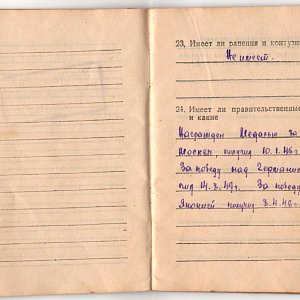 23. Имеет ли ранения и контузи
Не имеет.
24. Имеет ли правительственные
и какие
Награжден Медалью За
Москвы, получил 10.1.45г.
За победу над Германие
14.3.47г. За победу
Японией получил 3.4.46г.